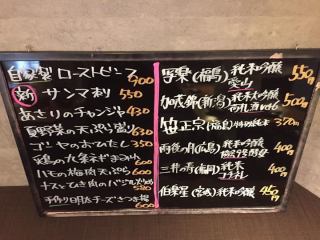 自家製 ローストビーフ 900
新 サンマ刺 550
あさりのチャンジャ 430
夏野菜の天ぷら盛り 630
ゴーヤのおひたし 350
鶏の 600
ハモの梅肉天ぷら 600
ナスとひき肉のバジル 580
手作り明太チーズさつま揚 600
写楽(福島) 純米吟醸 愛山 550円
加茂錦(新潟) 純米大吟醸 500円
笹正宗(福島) 特別純米 370円
雨後の月(広島) 純米吟醸 400円
三井の寿(福岡) 純米 400円
伯楽星(宮城) 純米吟醸 450円